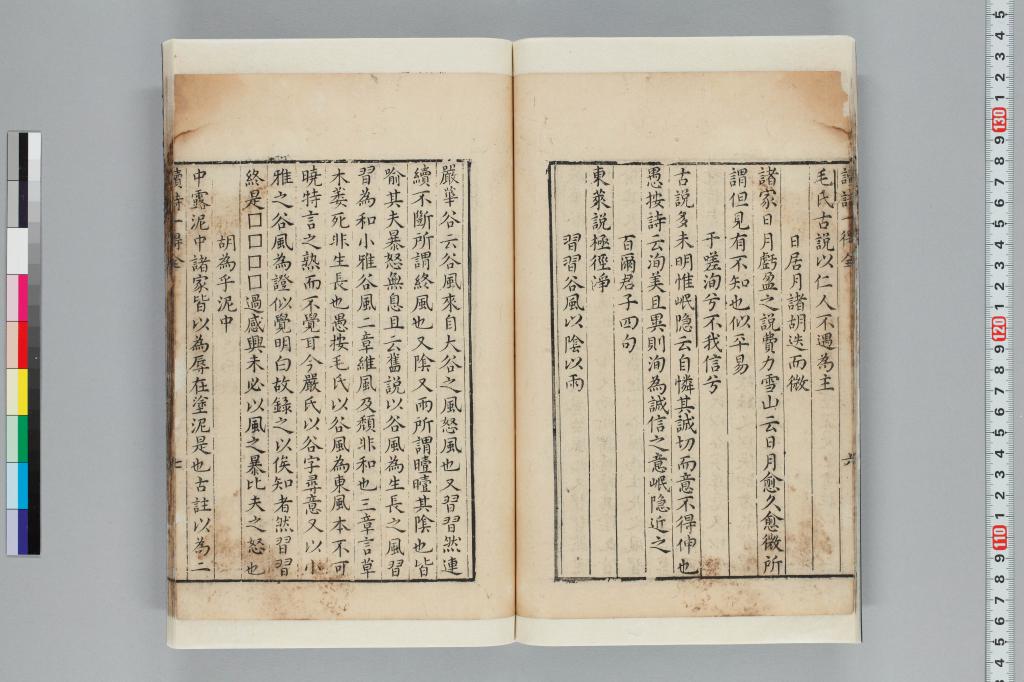 讀詩一得全
六
毛氏古說以仁人不遇為主
日居月諸胡迭而微
諸家日月虧盈之說費力雪山云日月愈久愈微所
謂但見有不知也似平易
于嗟洵兮不我信兮
古說多未明惟岷隐云自憐其誠切而意不得伸也
愚按詩云洵美且異則洵為誠信之意岷隐近之
百爾君子四句
東萊說極徑淨
習習谷風以陰以雨
嚴華谷云谷風來自大谷之風怒風也又習習然連
續不斷所謂終風也又陰又雨所謂曀曀其陰也皆
喻其夫暴怒無息且云舊說以谷風為生長之風習
習為和小雅谷風二章維風及頹非和也三章言草
木萎死非生長也愚按毛氏以谷風為東風本不可
曉特言之熟而不覺耳今嚴氏以谷字尋意又以小
雅之谷風為證似覺明白故錄之以俟知者然習習
終是囗囗囗囗過感興未必以風之暴比夫之怒也
胡為乎泥中
中露泥中諸家皆以為辱在塗泥是也古註以為二
讀詩一得全
七
5
4
3
2
1
130
9
8
7
6
5
4
3
2
1
120
9
8
7
6
5
4
3
2
1
110
9
8
7
6
5
4